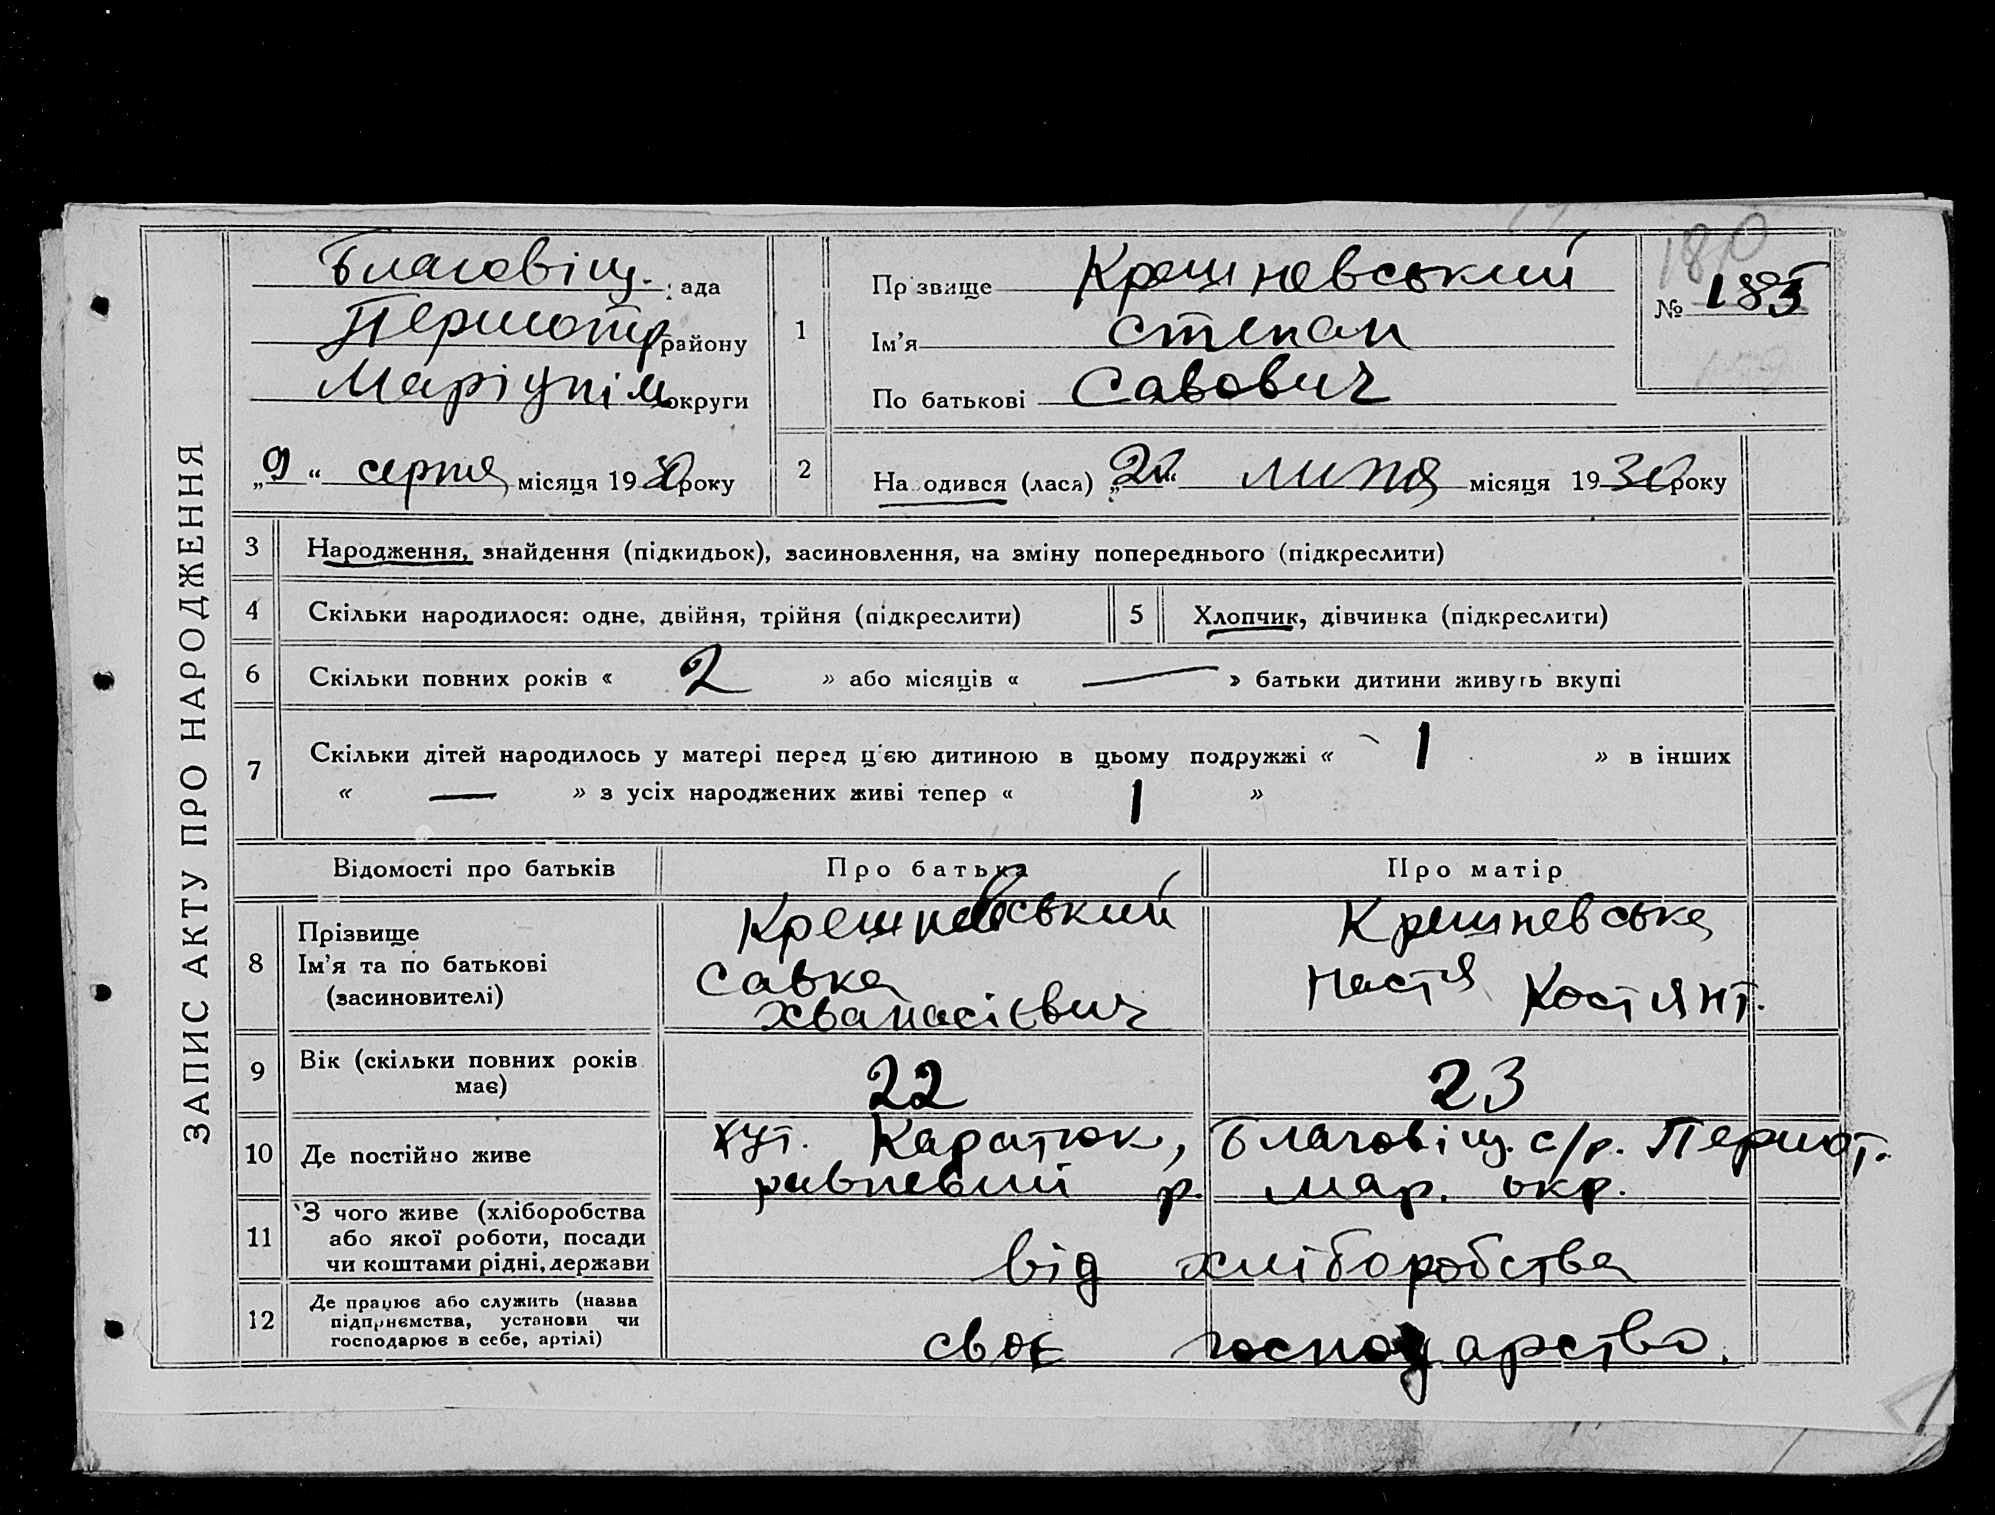 ЗАПИС АКТУ ПРО НАРОДЖЕННЯ
Благовіщ. рада
Першотр району
Маріупільокруги
„9“ серпня місяця 1930 року
1
Прізвище Крешневський
Ім'я Степан
По батькові Савович
180
№ 183
2
Народився (лася) „ “ липня місяця 1930 року
3 Народження, знайдення (підкидьок), засиновлення, на зміну попереднього (підкреслити)
4 Скільки народилося: одне, двійня, трійня (підкреслити) 5 Хлопчик, дівчинка (підкреслити)
6 Скільки повних років « 2 » або місяців « — » батьки дитини живуть вкупі
7 Скільки дітей народилось у матері перед ц'єю дитиною в цьому подружжі « 1 » в інших
« — » з усіх народжених живі тепер « 1 »
Відомості про батьків Про батька Про матір
8 Прізвище
Ім'я та по батькові
(засиновителі)
Крешневський
Савка
Хванасієвич
Крешневська
Настя Костянт.
9 Вік (скільки повних років має) 22 23
10 Де постійно живе
хут. Каратюк, Благовіщ. с/р. Першот.
р. Мар. окр.
11 З чого живе (хліборобства
або якої роботи, посади
чи коштами рідні, держави
від хліборобства
12 Де працює або служить (назва
підприємства, установи чи
господарює в себе, артілі)
своє господарство.